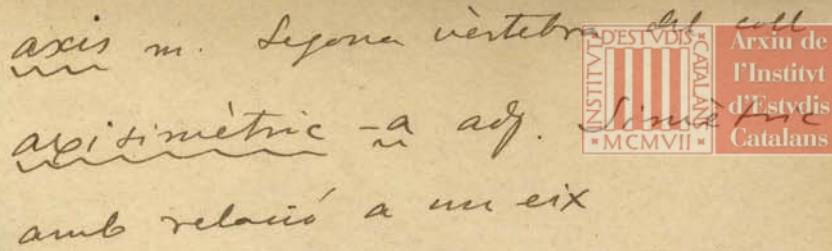 axis m. Segona vèrtebra del coll
axisimètric -a adj. Simètric
amb relació a un eix
INSTITVT D'ESTVDIS CATALANS
MCMVII
Arxiu de
l'Institvt
d'Estvdis
Catalans